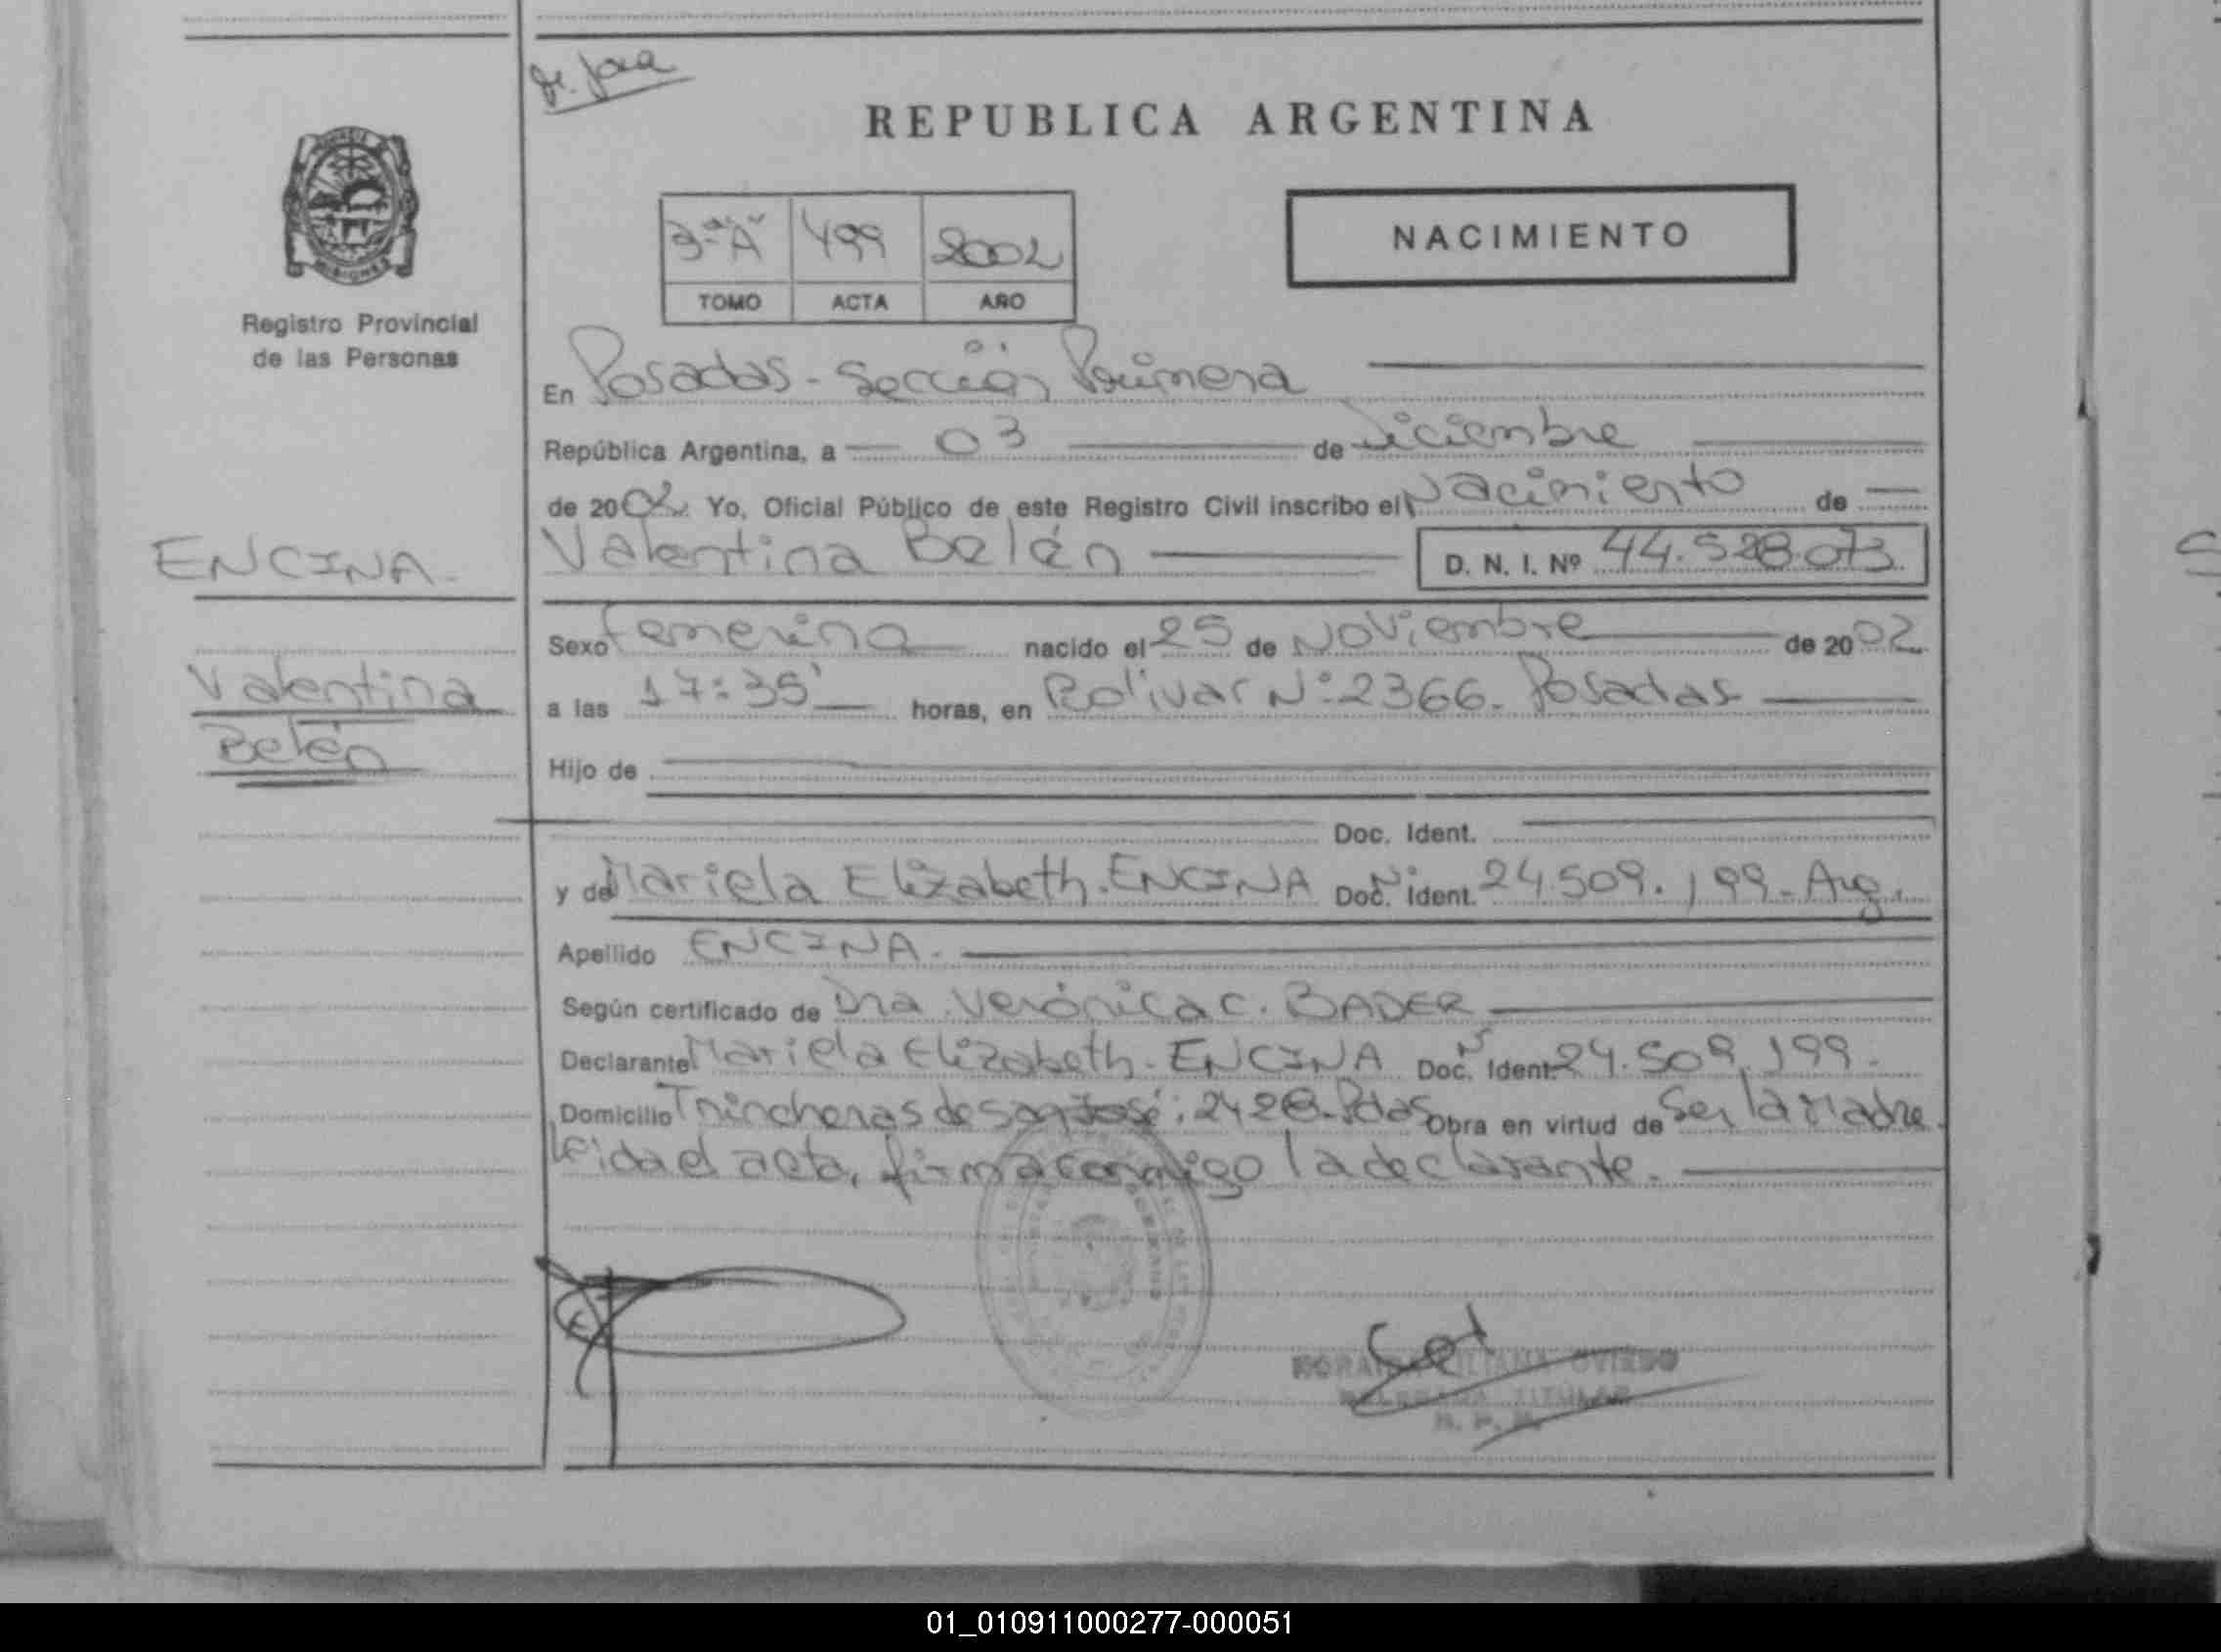 REPUBLICA ARGENTINA
MISIONES
Registro Provincial
de las Personas
3º "A" 499 2002
TOMO ACTA AÑO
NACIMIENTO
En Posadas - Sección Primera
República Argentina, a 03 de Diciembre
de 2002 Yo, Oficial Público de este Registro Civil inscribo el Nacimiento de
ENCINA
Valentina Belén D. N. I. Nº 44.528.073
Sexo femenino nacido el 25 de Noviembre de 2002
Valentina
Belén
a las 17:35' horas, en Bolivar Nº 2366. Posadas
Hijo de
Doc. Ident.
y de Mariela Elizabeth. ENCINA Doc. Ident. 24.509.199 - Arg.
Apellido ENCINA.
Según certificado de Dra Verónica C. BADER
Declarante Mariela Elizabeth - ENCINA Doc. Ident. 24.509.199.
Domicilio Trincheras de San José: 2428. Pdas Obra en virtud de Ser la Madre.
leida el acta, firma conmigo la declarante.
OVIEDO
TITULAR
01_010911000277-000051